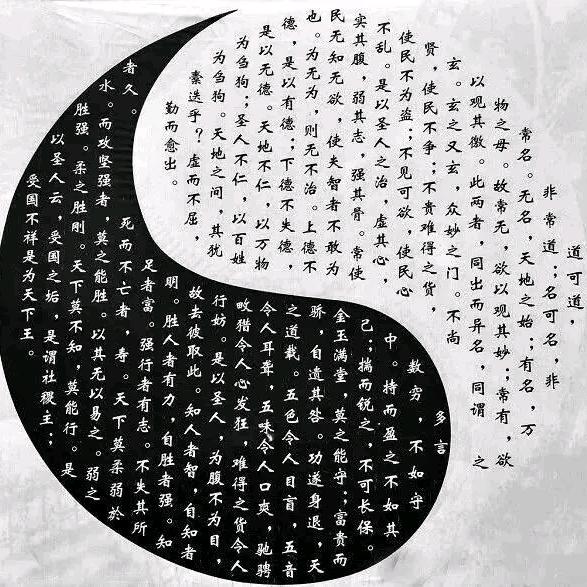 道可道，
非常道；名可名，非
常名。无名，天地之始；有名，万
物之母。故常无，欲以观其妙；常有，欲
以观其徼。此两者，同出而异名，同谓之
玄。玄之又玄，众妙之门。不尚
贤，使民不争；不贵难得之货，
使民不为盗；不见可欲，使民心
不乱。是以圣人之治，虚其心，
实其腹，弱其志，强其骨。常使
民无知无欲，使夫智者不敢为
也。为无为，则无不治。上德不
德，是以有德；下德不失德，
是以无德。天地不仁，以万物
为刍狗；圣人不仁，以百姓
为刍狗。天地之间，其犹
乎？虚而不屈，
勤而愈出。
多言
数穷不如守
中。持而盈之不如其
己；揣而锐之，不可长保。
金玉满堂，莫之能守；富贵而
骄，自遗其咎。功遂身退，天
之道哉。五色令人目盲，五音
令人耳聋，五味令人口爽，驰骋
畋猎令人心发狂，难得之货令人
行妨。是以圣人，为腹不为目，
故去彼取此。知人者智，自知者
明。胜人者有力，自胜者强。知
足者富。强行者有志。不失其所
者久。死而不亡者，寿。天下莫柔弱於
水。而攻坚强者，莫之能胜。以其无以易之。弱之
胜强。柔之胜刚。天下莫不知，莫能行。是
以圣人云，受国之垢，是谓社稷主；
受国不祥是为天下王。